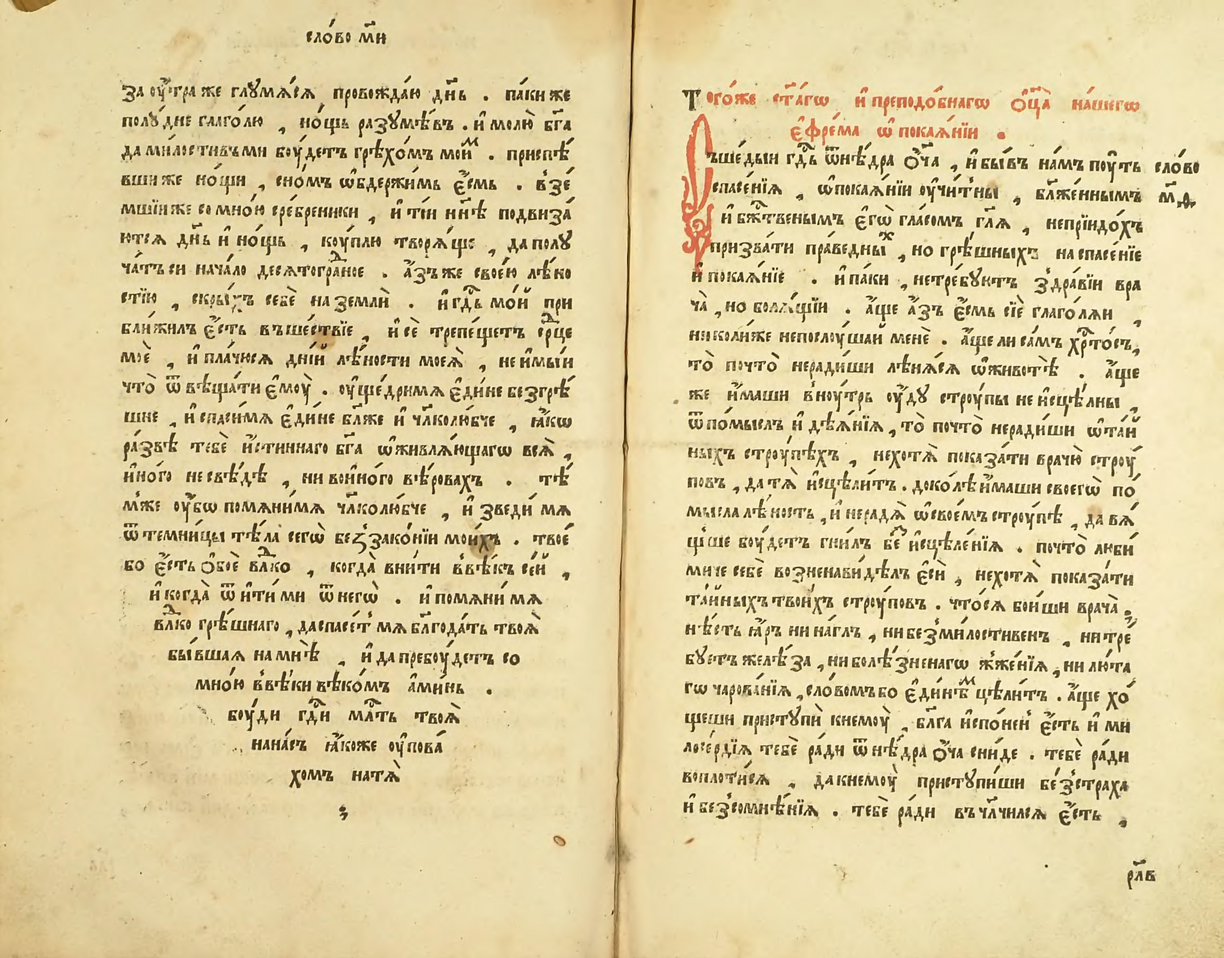 сло́во м҃и
заоу́тра же глꙋмѧ́сѧ провожда́ю дн҃ь . па́ки же
полꙋ́дне гл҃аго́лю , но́щь разꙋмѣ́въ . и҆ молю̀ бг҃а
да ми́лостивъ ми бꙋ́детъ грѣхо́мъ мои̑м . приспѣ́
вши же но́щи , сно́мъ ѡ҆бдержи́мь є҆́смь . в̾зе́
мшїи же со мно́ю сре́бреники , и҆ ті́и нн҃ѣ подвиза́
ютсѧ дн҃ь и҆ но́щь , коу́плю творѧ́ще , да полꙋ
ча́тъ си нача́ло десѧтогра́дное . а҆́зъ же свое́ю лѣ́но
стїю , скры́хъ себѐ на землѝ . и҆ гд҃ь мо́й при
бли́жилъ є҆́сть въшествїе , и҆ сѐ трепе́щетъ ср҃це
моѐ , и҆ пла́чюсѧ дні́й лѣ́ности моеѧ̀ , не и҆мы́и
что̀ ѿвѣща́ти є҆моу̀ . оу҆ще́дримѧ є҆ди́не безгрѣ́
шне , и҆ спаси́мѧ є҆ди́не бл҃же и҆ чл҃колю́бче , ꙗ҆́кѡ
ра́звѣ тебѐ и҆́стиннаго бг҃а ѡ҆живлѧ́ющагѡ всѧ̀ ,
и҆но́го не свѣ́дѣ , ни вои҆но́го вѣ́ровахъ . тѣ́
мже оу҆́бѡ помѧни́мѧ чл҃колю́бче , и҆ зведи́ мѧ
ѿ темни́цы тѣ́ла сегѡ̀ беззако́нїи мои́хъ . твоѐ
бо є҆́сть ѻ҆бо́е вл҃ко , когда̀ вни́ти в̾вѣ́къ се́й ,
и҆ когда̀ ѿити́ ми ѿ него̀ . и҆ помѧни́ мѧ
вл҃ко грѣ́шнаго , да спасе́т мѧ бл҃года́ть твоѧ̀
бы́вшаѧ на мнѣ̀ , и҆ да пребоу́детъ со
мно́ю в̾вѣ́ки вѣко́мъ а҆ми́нь .
боу́ди гд҃и мл҃ть твоѧ̀
на на́съ ꙗ҆́коже оу҆пова́
хомъ на тѧ̀
Того́же ст҃а́гѡ и҆ преподо́бнагѡ ѻ҆ц҃а̀ на́шегѡ
є҆фре́ма ѡ҆ покаѧ́нїи .
Съше́дыи гд҃ь ѿ нѣ́дра ѻ҆́ч҃а , и҆ бы́въ на́мъ поу́ть
спасе́нїѧ , ѡ҆ покаѧ́нїи оу҆чи́т ны̀ , бл҃же́ннымъ
и҆ бж҃твенымъ є҆гѡ̀ гла́сомъ гл҃ѧ , непрїидо́хъ
призва́ти пра́ведных , но грѣ́шныхъ на спасе́нїе
и҆ покаѧ́нїе . и҆ па́ки , нетре́бꙋютъ здра́вїи вра
ча̀ , но болѧ́щїи . а҆́ще а҆́зъ є҆́смь сїѐ глаго́лѧи ,
николи́же непослоу́шаи менѐ . а҆́ще ли са́мъ хр҃то́съ ,
то̀ почто̀ неради́ши лѣнѧ́сѧ ѡ҆ животѣ̀ . а҆́ще
же и҆́маши в̾ноу́трь оу҆́дꙋ строу́пы не и҆сцѣ́лны ,
ѿ по́мыслъ и҆ дѣѧ́нїѧ , то̀ почто̀ неради́ши ѡ҆ та́й
ныхъ строу́пѣхъ , нехотѧ̀ показа́ти врачю̀ строу́
повъ , да тѧ̀ и҆сцѣли́тъ . доко́лѣ и҆́маши своегѡ̀ по́
мысла лѣ́ность , и҆ нерадѧ̀ ѡ҆ своемъ строу́пѣ , да вѧ́
щїше боу́детъ гни́лъ беⷥ и҆сцѣле́нїѧ . почто̀ люби
ми́че себѐ возненави́дѣлъ є҆сѝ , нехотѧ̀ показа́ти
та́йныхъ твои́хъ строу́повъ . что́сѧ бои́ши врача̀ .
нѣ́сть ꙗ҆́ръ ни на́глъ , ни без̾ми́лостивенъ , ни тре́
бꙋетъ желѣ́за , ни болѣ́зненагѡ жже́нїѧ , ни лю́та
гѡ чарова́нїѧ , сло́вомъ бо є҆ди́нѣм цѣли́тъ . а҆́ще хо́
щеши пристꙋпѝ к немоу̀ , бл҃га и҆спо́ленъ є҆́сть и҆ ми
лосе́рдїѧ тебѐ ра́ди ѿ нѣ́дра ѻ҆́ч҃а сни́де . тебѐ ра́ди
воплоти́сѧ , да к немоу̀ пристꙋ́пиши без̾стра́ха
и҆ без̾сомнѣ́нїѧ . тебѐ ра́ди въчл҃чилсѧ є҆́сть ,
сло́во
м҃ѳ.
рл҃в